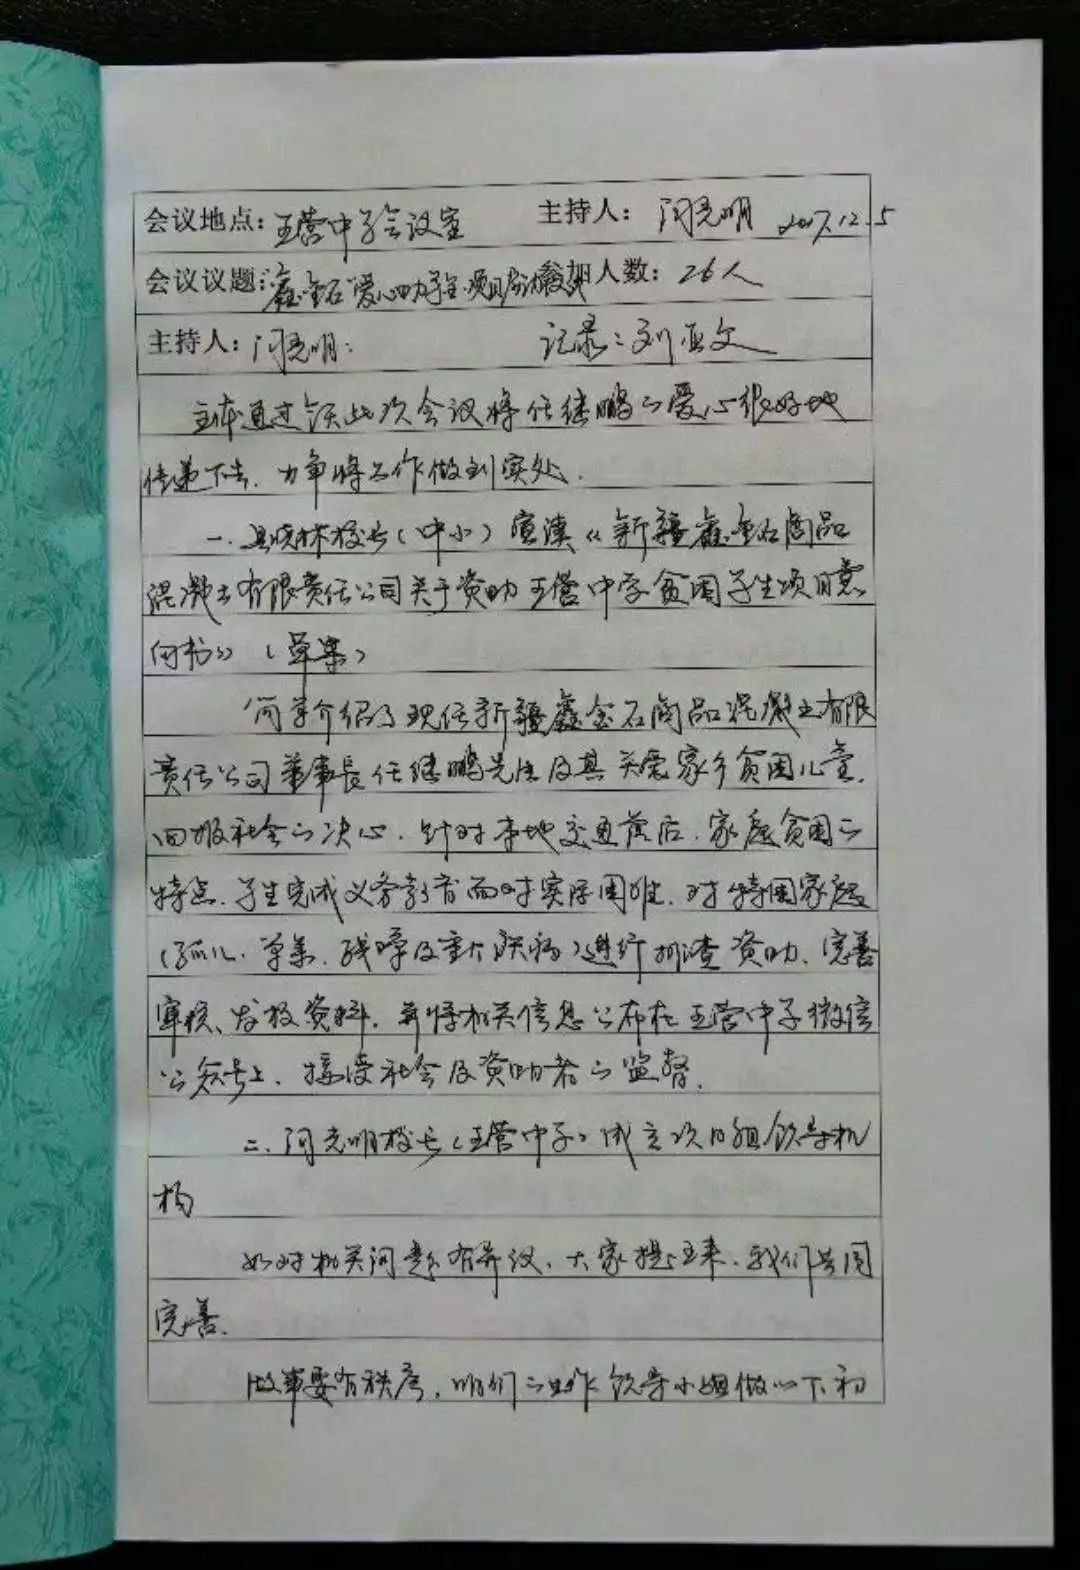 会议地点：王营中学会议室 主持人：闫克明 2017.12.5
会议议题：鑫金石"爱心助学"项目启动 参加人数：26人
主持人：闫克明： 记录：刘亚文
通过今天此次会议将任继鹏的爱心很好地
传递下去，力争将工作做到实处。
一、校长（中小）宣读《新疆鑫金石商品
混凝土有限责任公司关于资助王营中学贫困学生项目意
向书》（草案）
简单介绍了现任新疆鑫金石商品混凝土有限
责任公司董事長任继鹏先生及其关爱家乡贫困儿童，
回报社会的决心，针对本地交通落后，家庭贫困的
特点，学生完成义务教育面对实际困难，对特困家庭
（孤儿、单亲、残障及重大疾病）进行排查资助，完善
审核、发放资料，并将相关信息公布在王营中学微信
公众号上，接受社会及资助者的监督。
二、闫克明校长（王营中学）成立项目组领导机
构
如对相关问题有异议，大家提出来，我们共同
完善。
做事要有秩序，咱们的工作领导小组做以下初